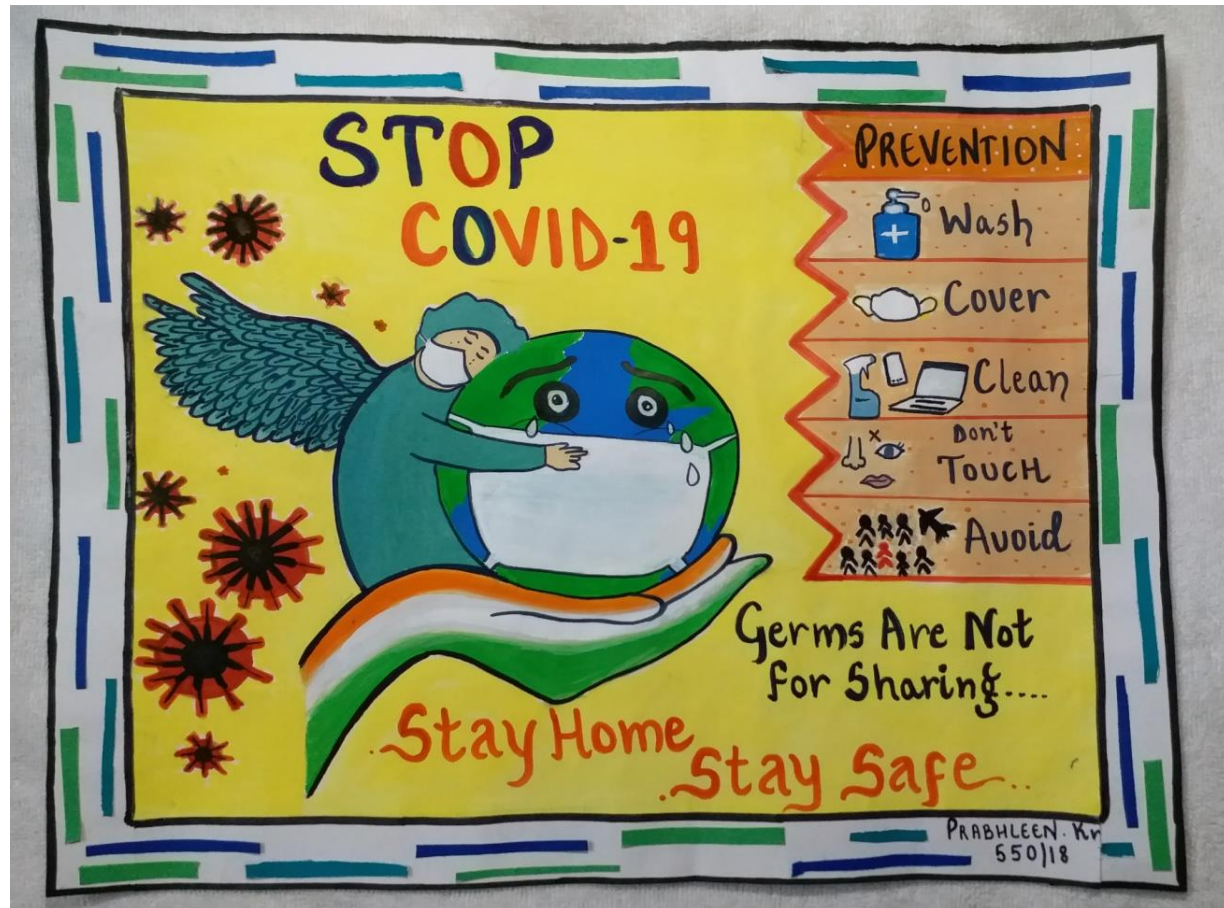 STOP
COVID-19
PREVENTION
Wash
Cover
Clean
Don't
TOUCH
Avoid
Germs Are Not
for Sharing....
Stay Home
Stay Safe...
PRABHLEEN. Kr
550/18